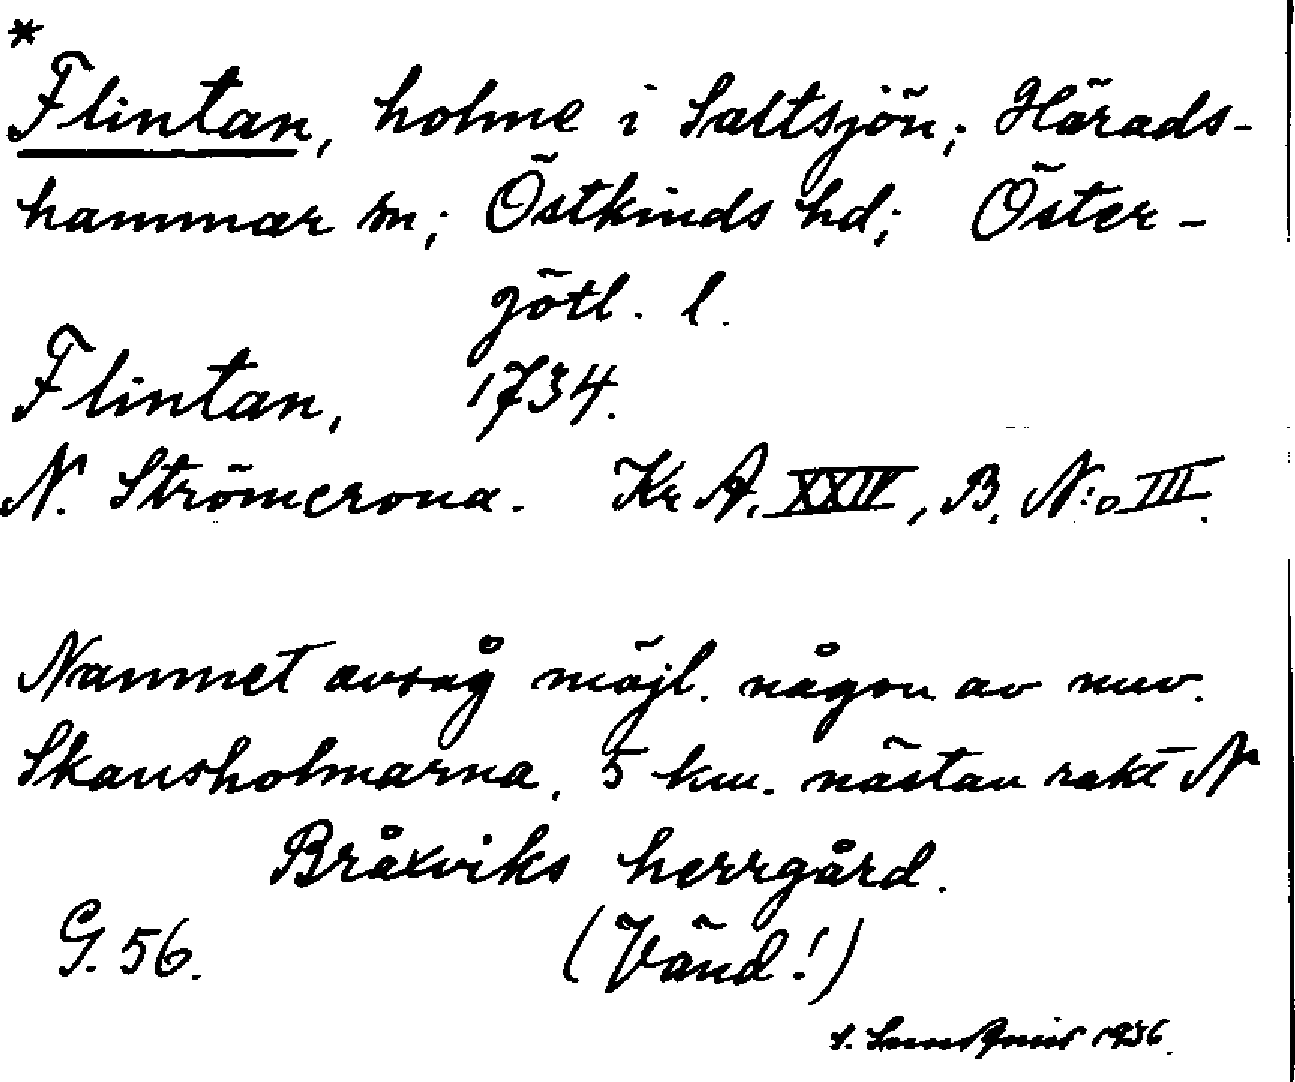 *
Flintan, holme i Saltsjön; Härads-
hammar sn; Östkinds hd; Öster-
götl. l.
Flintan, 1734.
N. Strömcrona. Kr A. XXIV, B. N:o III.
Namnet avsåg möjl. någon av nuv.
Skansholmarna, 5 km. nästan rakt N
Bråxviks herrgård.
G. 56. (Vänd!)
1936.